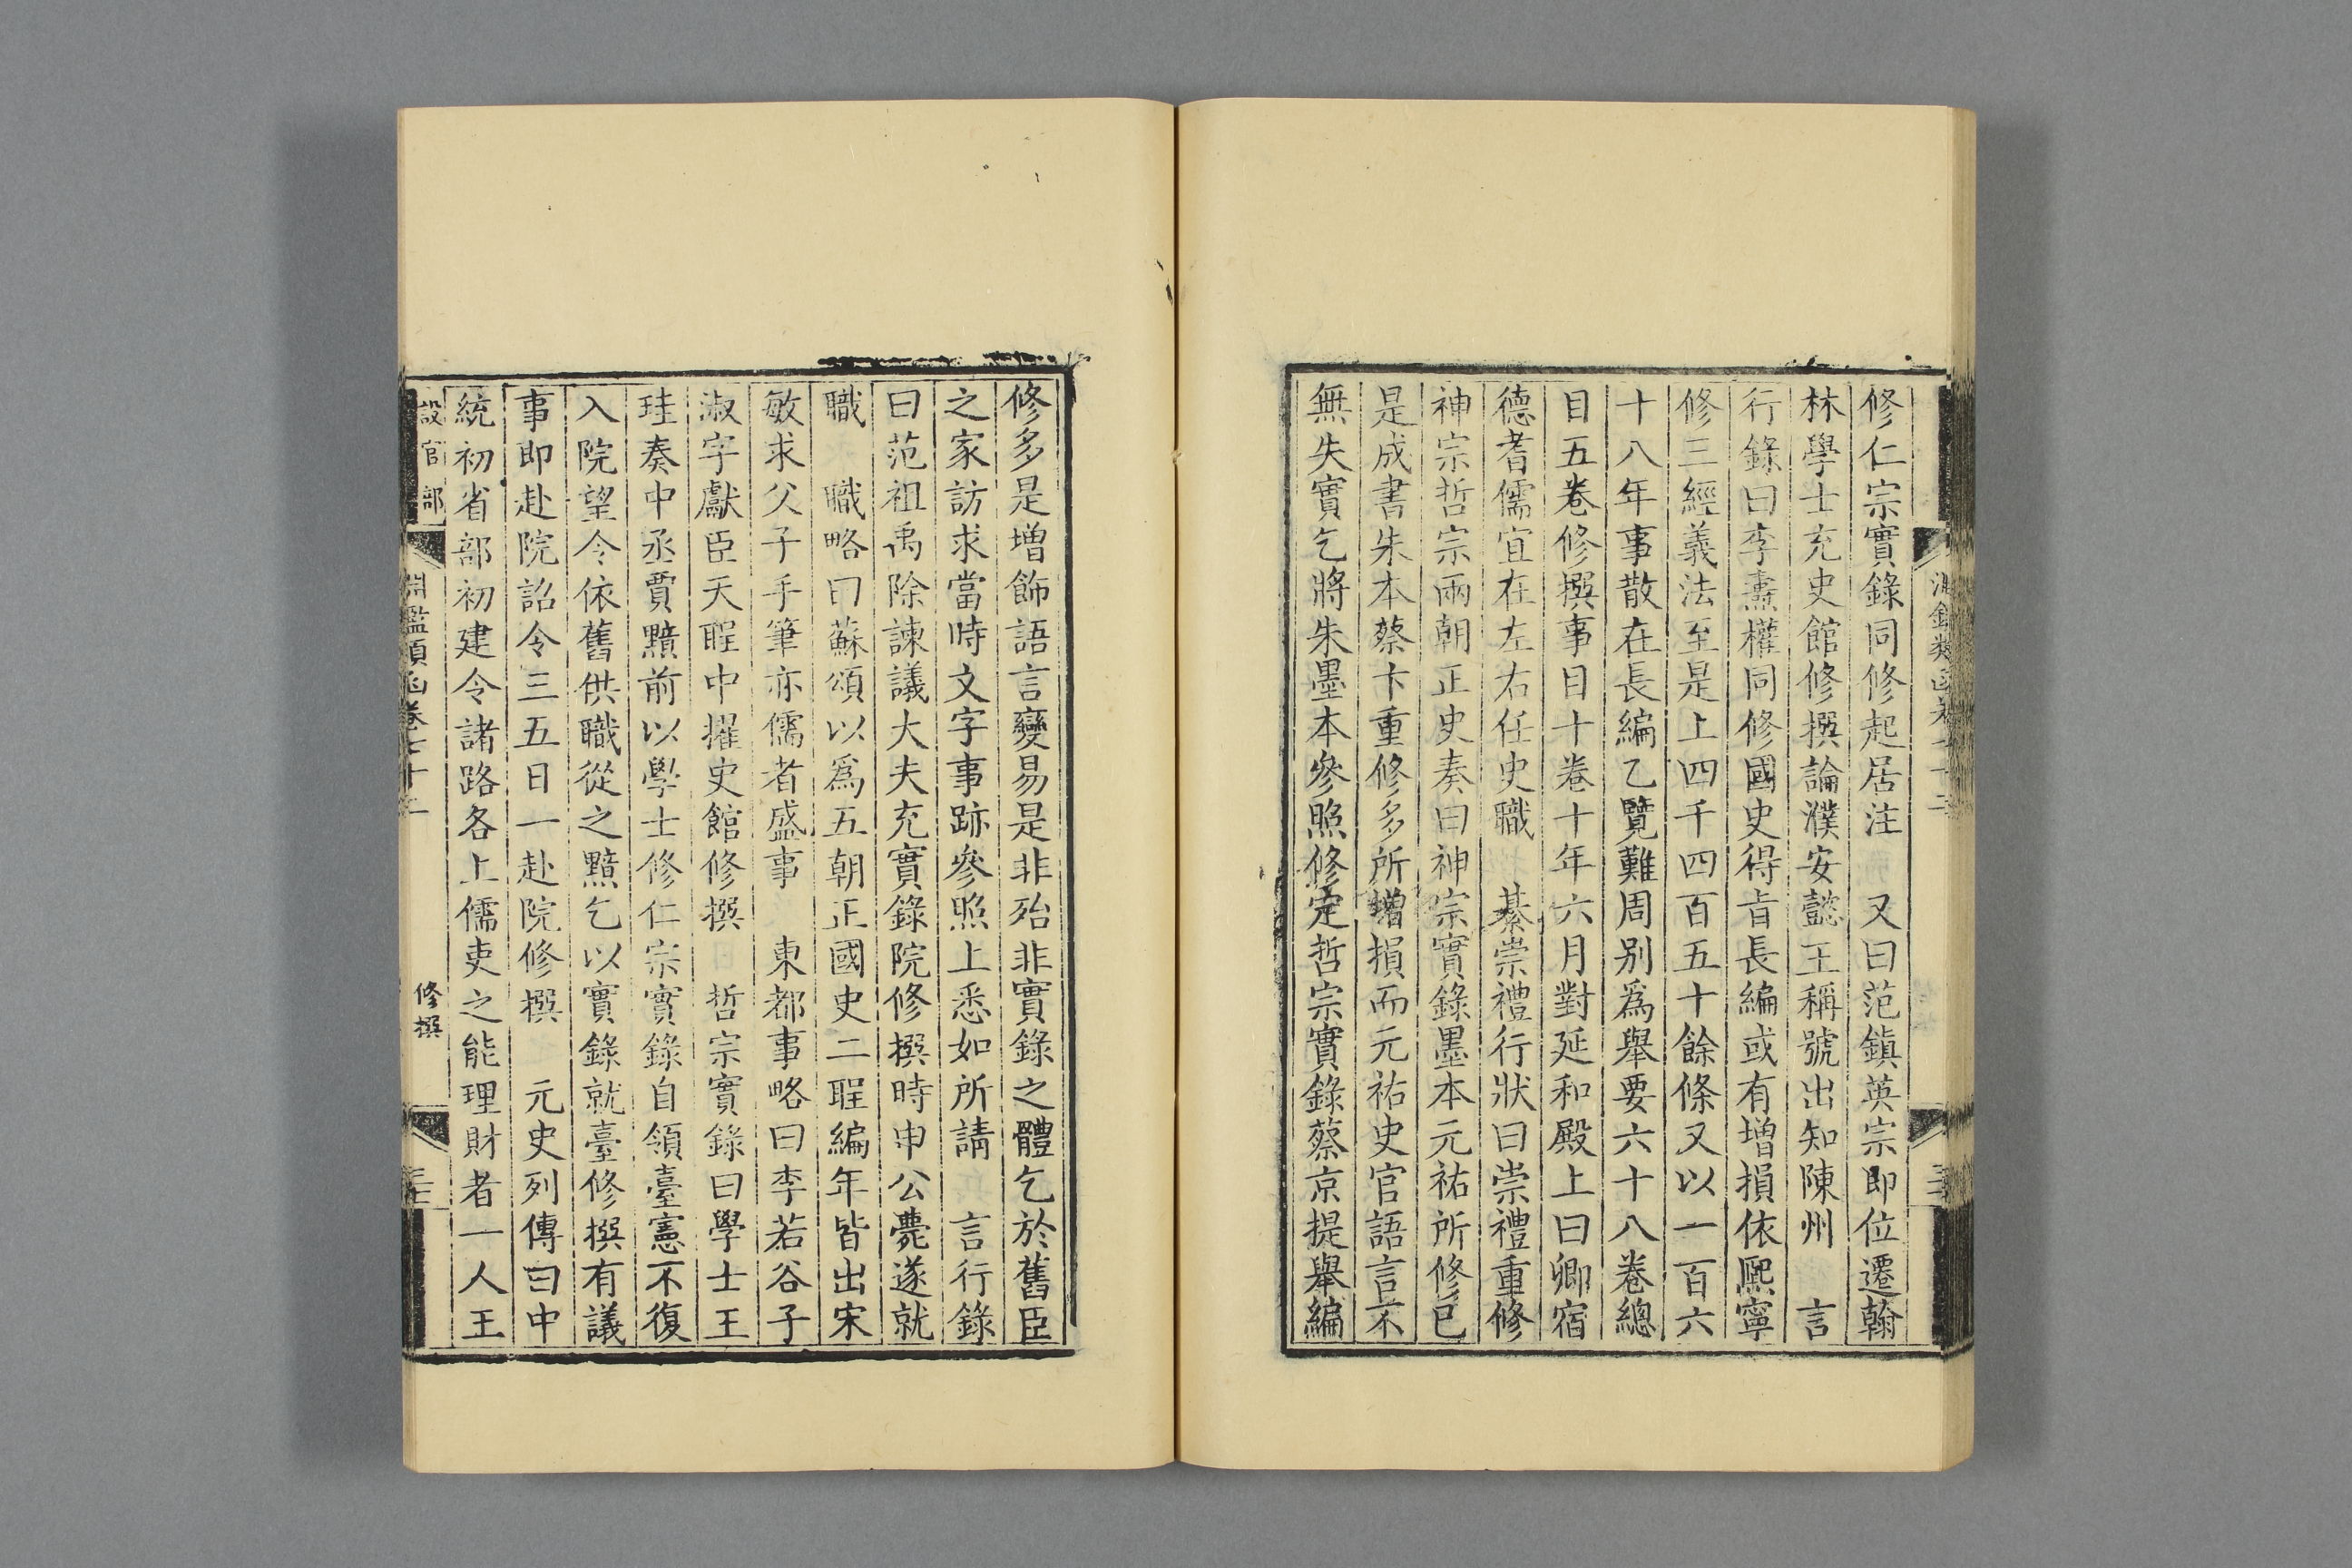 修仁宗實錄同修起居注　又曰范鎮英宗即位遷翰
林學士充史館修撰論濮安懿王稱號出知陳州　言
行錄曰李燾權同修國史得旨長編或有增損依熈寧
修三經義法至是上四千四百五十餘條又以一百六
十八年事散在長編乙覽難周别爲舉要六十八卷總
目五卷修撰事目十卷十年六月對延和殿上曰卿宿
德耆儒宜在左右任史職　綦崇禮行狀曰崇禮重修
神宗哲宗兩朝正史奏曰神宗實錄墨本元祐所修已
是成書朱本蔡卞重修多所增損而元祐史官語言不
無失實乞將朱墨本參照修定哲宗實錄蔡京提舉編
修多是增飾語言變易是非殆非實錄之體乞於舊臣
之家訪求當時文字事跡參照上悉如所請　言行錄
曰范祖禹除諫議大夫充實錄院修撰時申公薨遂就
職　職略曰蘇頌以爲五朝正國史二聖編年皆出宋
敏求父子手筆亦儒者盛事　東都事略曰李若谷子
淑字獻臣天聖中擢史館修撰　哲宗實錄曰學士王
珪奏中丞賈黯前以學士修仁宗實錄自領臺憲不復
入院望令依舊供職從之黯乞以實錄就臺修撰有議
事即赴院詔令三五日一赴院修撰　元史列傳曰中
統初省部初建令諸路各上儒吏之能理財者一人王
設官部
淵鑑類函卷七十二
修撰